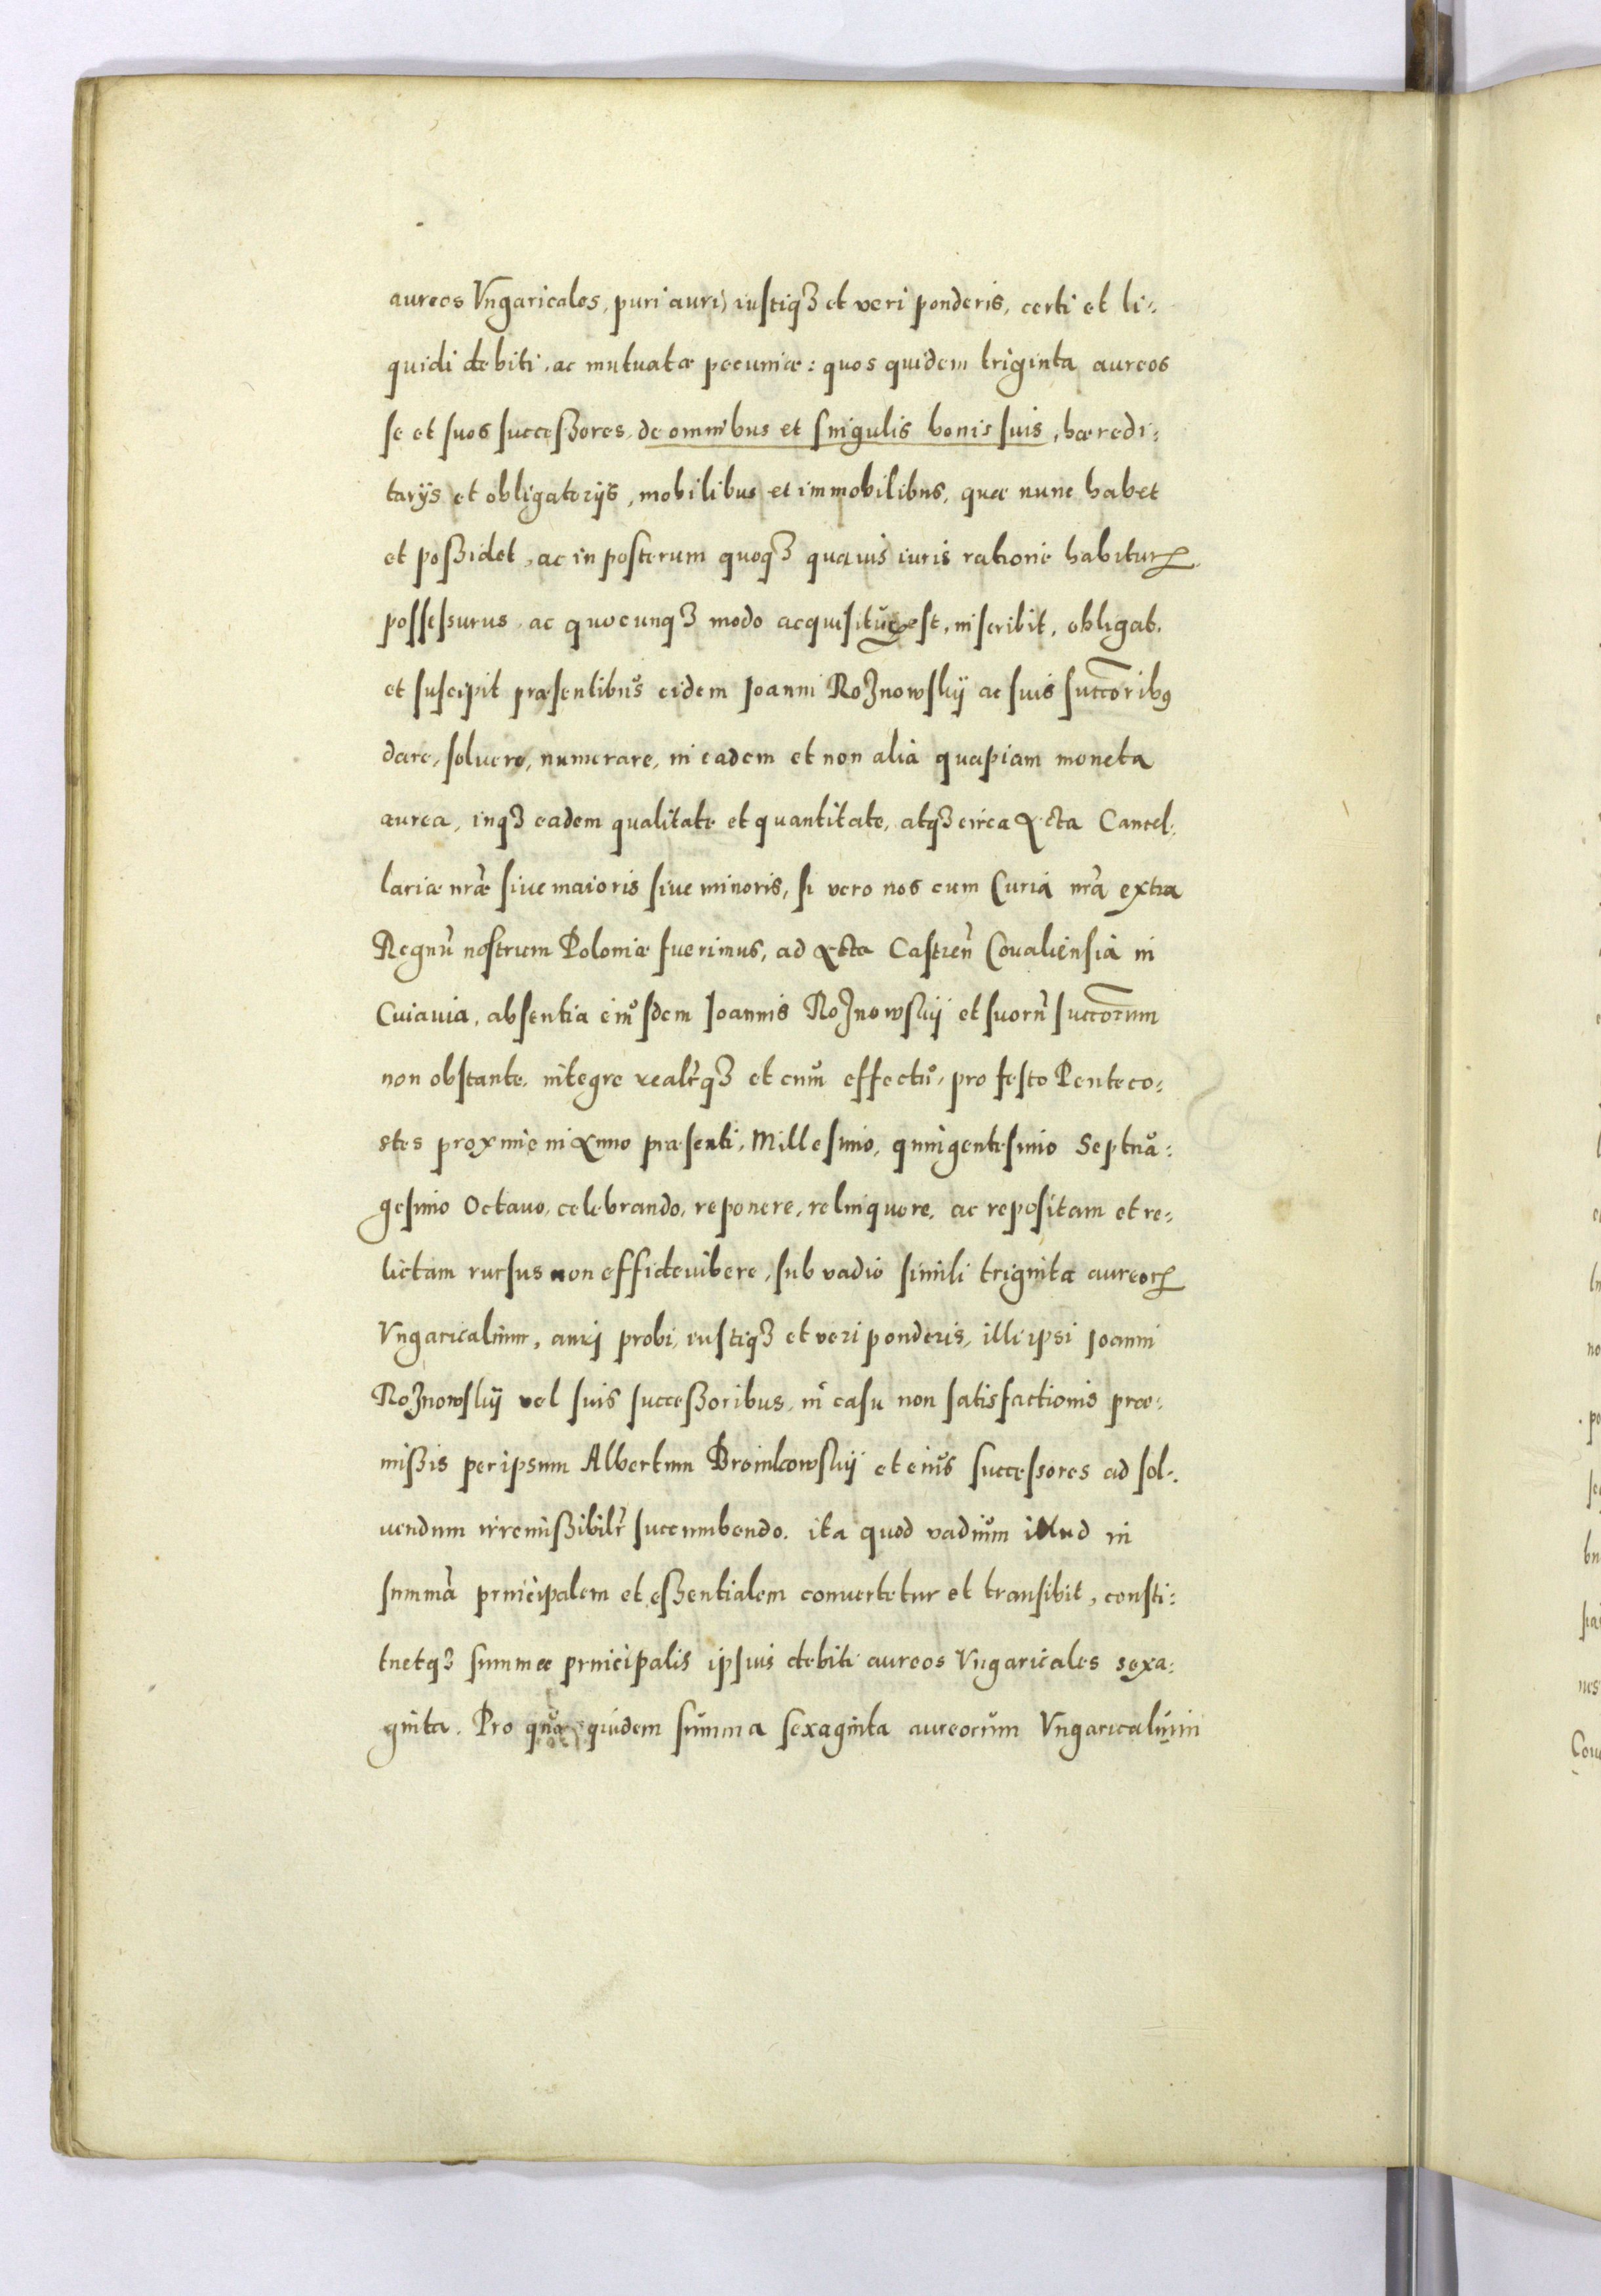 aureos Vngaricales, puri auri, iustiq₃ et veri ponderis, certi et li-
quidi debiti, ac mutuatæ pecuniæ: quos quidem triginta aureos
se et suos successores, de omnibus et singulis bonis suis, hæredi-
tarijs et obligatorijs, mobilibus et immobilibus, quæ nunc habet
et possidet, ac in posterum quoq₃ quavis iuris ratione habiturꝰ
possessurus, ac quocunq₃ modo acquisiturꝰ est, inscribit, obligat,
et suscipit præsentibus eidem Joanni Roznowskij ac suis succoribꝰ
dare, soluere, numerare, in eadem et non alia quapiam moneta
aurea, inq₃ eadem qualitate et quantitate, atq₃ circa Acta Cancel-
lariæ nr̃æ siue maioris siue minoris, si vero nos cum Curia nr̃a extra
Regnũ nostrum Poloniæ fuerimus, ad Acta Castreñ Coualiensia in
Cuiauia, absentia eiusdem Joannis Roznowskij et suorũ succorum
non obstante, integre realr̃q₃ et cum effectu, pro festo Penteco-
stes proxime in Anno præsenti, Millesimo, quingentesimo Septua-
gesimo Octauo, celebrando, reponere, relinquere, ac repositam et re-
lictam rursus non effidevibere, sub vadio simili triginta aureorꝝ
Vngaricalium, auri probi, iustiq₃ et veri ponderis, illi ipsi Joanni
Roznowskij vel suis successoribus, in casu non satisfactionis præ-
missis per ipsum Albertum Broinkowskij et eius successores ad sol-
uendum irremissibilr̃ succumbendo. ita quod vadium illud in
summã principalem et essentialem conuertetur et transibit, consti-
tuetq₃ summæ principalis ipsius debiti aureos Vngaricales sexa-
ginta. Pro qua quidem summa sexaginta aureorum Vngaricalium